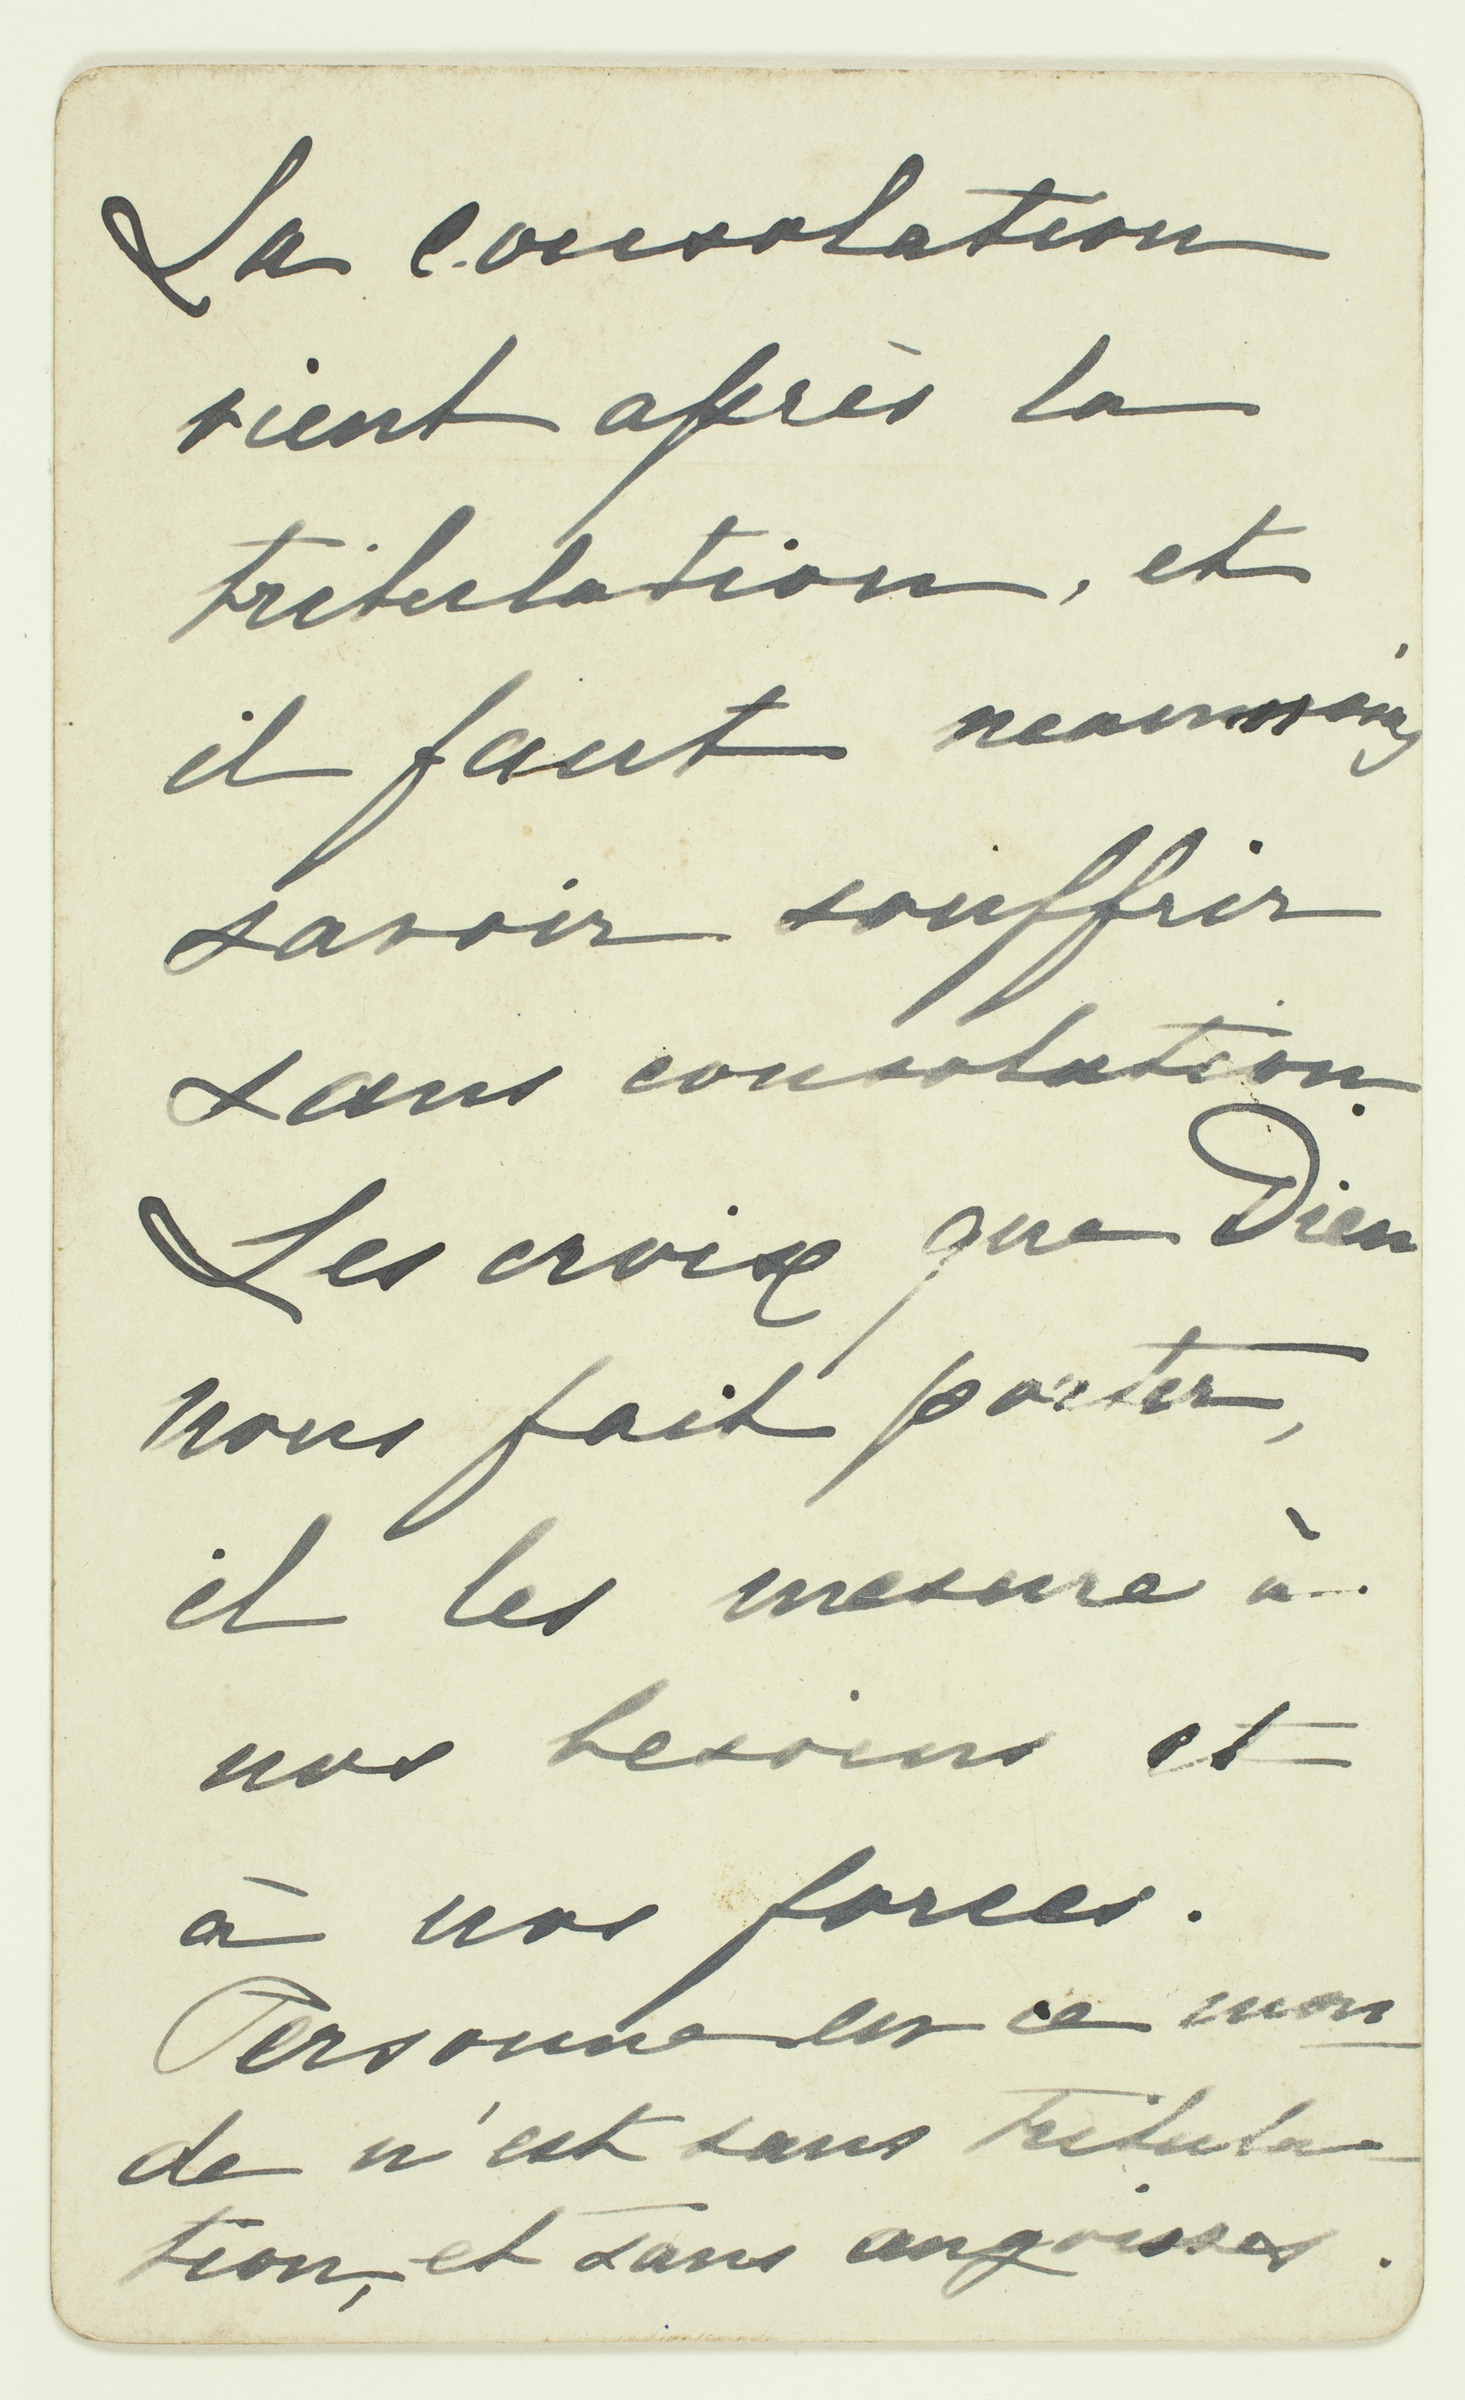 La consolation
vient après la
tribulation, et
il faut neanmoins
savoir souffrir
sans consolation.
Les croix que Dieu
nous fait porter,
il les mesure à
nos besoins et
à nos forces.
Personne en ce mon
de n'est sans tribula-
tion, et sans angoisses.